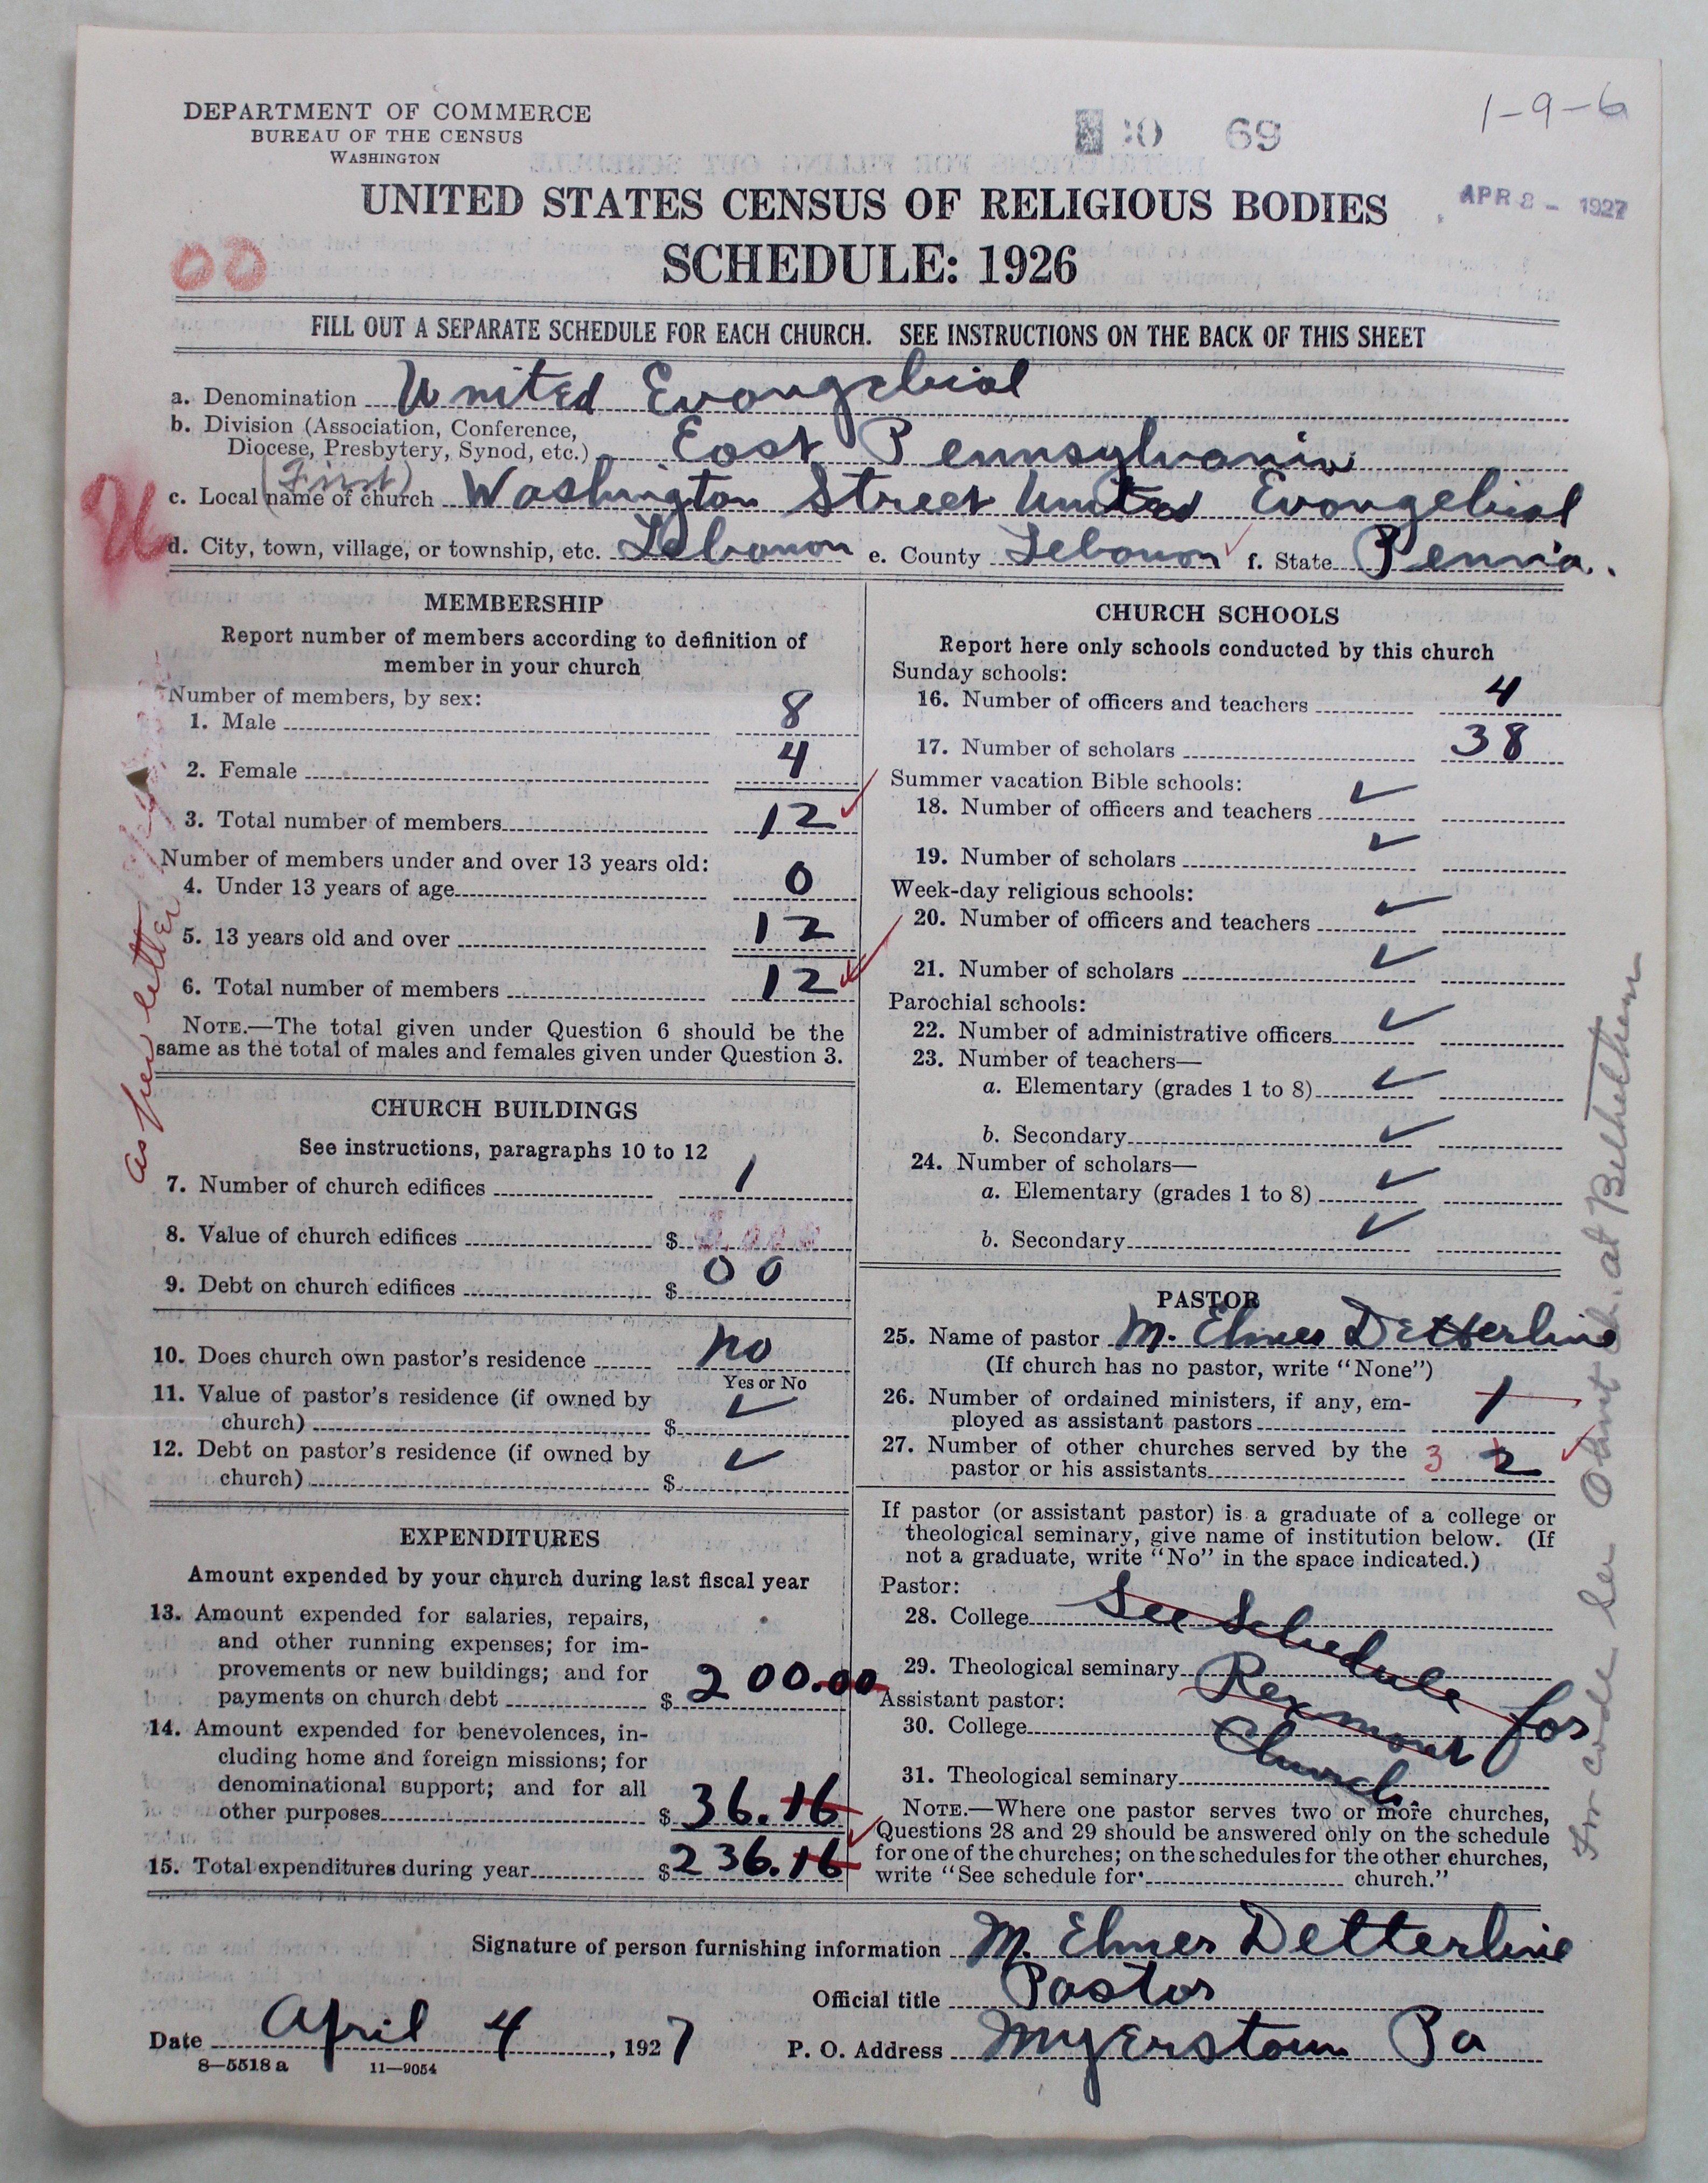 DEPARTMENT OF COMMERCE
BUREAU OF THE CENSUS
WASHINGTON
69
1-9-6
APR 8 - 1927
UNITED STATES CENSUS OF RELIGIOUS BODIES
SCHEDULE: 1926
00
FILL OUT A SEPARATE SCHEDULE FOR EACH CHURCH. SEE INSTRUCTIONS ON THE BACK OF THIS SHEET
a. Denomination United Evangelical
b. Division (Association, Conference,
Diocese, Presbytery, Synod, etc.) East Pennsylvania
(First)
c. Local name of church Washington Street United Evangelical
d. City, town, village, or township, etc. Lebanon e. County Lebanon f. State Penn'a.
MEMBERSHIP
Report number of members according to definition of
member in your church
Number of members, by sex:
1. Male 8
2. Female 4
3. Total number of members 12
Number of members under and over 13 years old:
4. Under 13 years of age 0
5. 13 years old and over 12
6. Total number of members 12
NOTE.—The total given under Question 6 should be the
same as the total of males and females given under Question 3.
as per letter
CHURCH BUILDINGS
See instructions, paragraphs 10 to 12
7. Number of church edifices 1
8. Value of church edifices $
9. Debt on church edifices $ 00
10. Does church own pastor's residence no
Yes or No
11. Value of pastor's residence (if owned by
church) $ ✓
12. Debt on pastor's residence (if owned by
church) $ ✓
EXPENDITURES
Amount expended by your church during last fiscal year
13. Amount expended for salaries, repairs,
and other running expenses; for im-
provements or new buildings; and for
payments on church debt $ 200.00
14. Amount expended for benevolences, in-
cluding home and foreign missions; for
denominational support; and for all
other purposes $ 36.16
15. Total expenditures during year $ 236.16
CHURCH SCHOOLS
Report here only schools conducted by this church
Sunday schools:
16. Number of officers and teachers 4
17. Number of scholars 38
Summer vacation Bible schools:
18. Number of officers and teachers ✓
19. Number of scholars ✓
Week-day religious schools:
20. Number of officers and teachers ✓
21. Number of scholars ✓
Parochial schools:
22. Number of administrative officers ✓
23. Number of teachers—
a. Elementary (grades 1 to 8) ✓
b. Secondary ✓
24. Number of scholars—
a. Elementary (grades 1 to 8) ✓
b. Secondary ✓
PASTOR
25. Name of pastor M. Elmer Detterline
(If church has no pastor, write "None")
26. Number of ordained ministers, if any, em-
ployed as assistant pastors 1
27. Number of other churches served by the
pastor or his assistants 3 2
If pastor (or assistant pastor) is a graduate of a college or
theological seminary, give name of institution below. (If
not a graduate, write "No" in the space indicated.)
Pastor:
28. College See Schedule for
29. Theological seminary Rexmont
Assistant pastor:
30. College Church.
31. Theological seminary
NOTE.—Where one pastor serves two or more churches,
Questions 28 and 29 should be answered only on the schedule
for one of the churches; on the schedules for the other churches,
write "See schedule for church."
For code see Olivet Ch. at Bethlehem
Signature of person furnishing information M. Elmer Detterline
Official title Pastor
Date April 4, 1927 P. O. Address Myerstown Pa
8—5518 a 11—9054